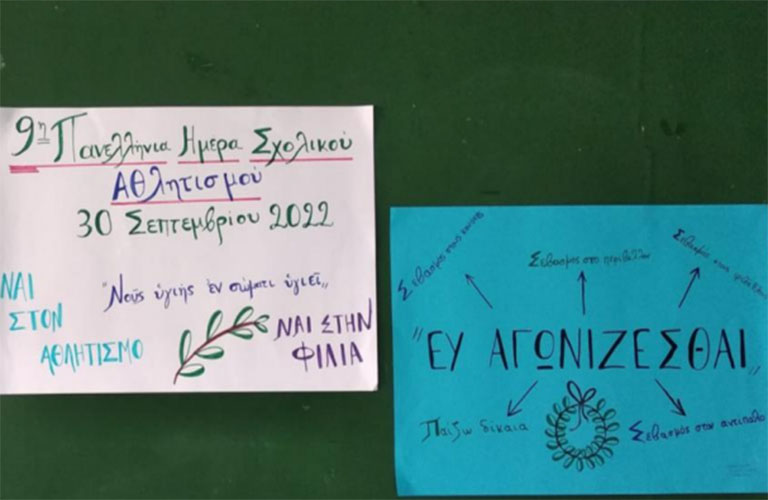 9η Πανελλήνια Ημέρα Σχολικού
Αθλητισμού
30 Σεπτεμβρίου 2022
"Νοῦς ὑγιής ἐν σώματι ὑγιεῖ„
ΝΑΙ
ΣΤΟΝ
ΑΘΛΗΤΙΣΜΟ
ΝΑΙ ΣΤΗΝ
ΦΙΛΙΑ
Σεβασμός στους
Σεβασμός στο περιβάλλον
Σεβασμός στους
"ΕΥ ΑΓΩΝΙΖΕΣΘΑΙ„
Παίζω δίκαια
Σεβασμός στον αντίπαλο